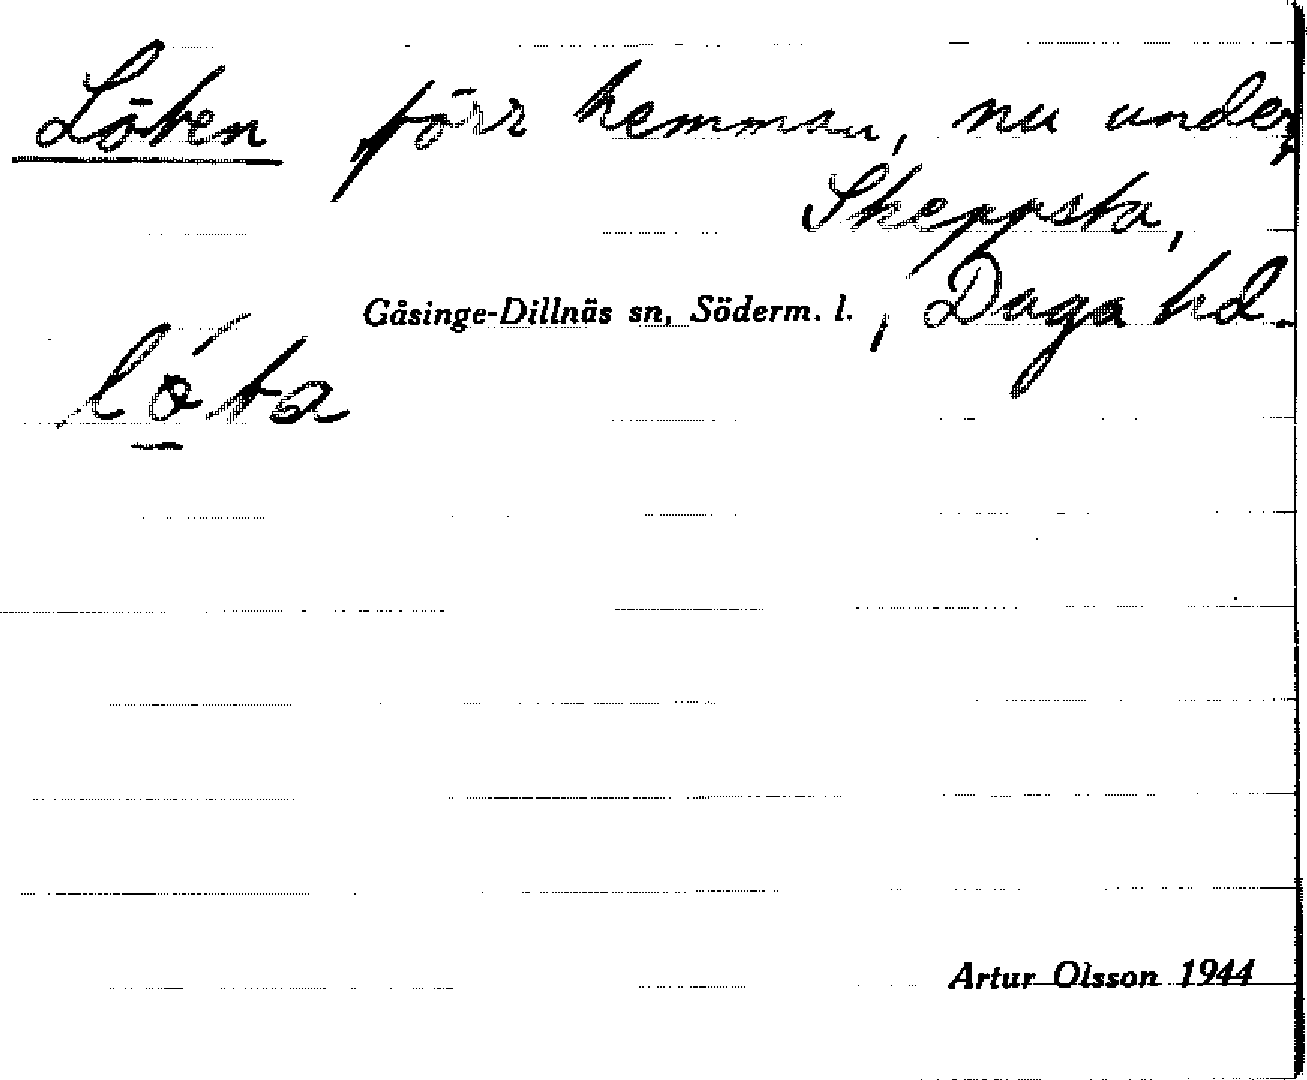 Löten förr hemman, nu under
Skeppsta,
Gåsinge-Dillnäs sn, Söderm. l., Daga hd.
lo̱´ta
Artur Olsson 1944